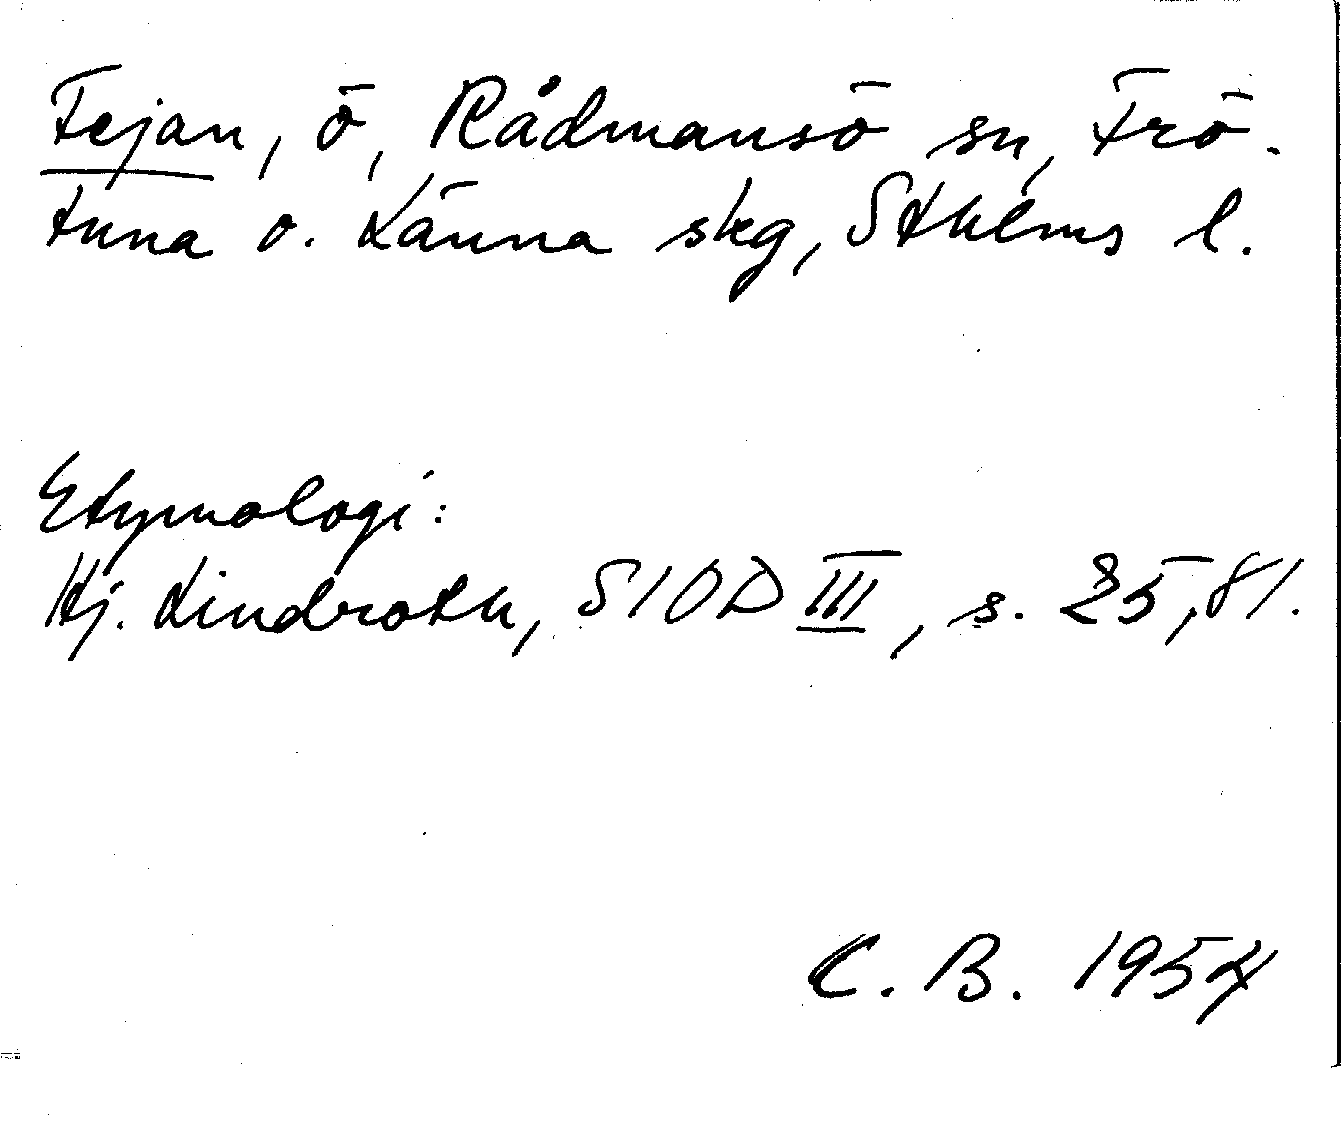 Fejan, ö, Rådmansö sn, Frö-
tuna o. Länna skg, Sthlms l.
Etymologi:
Hj. Lindroth, SIOD III, s. 25, 81.
C. B. 1954